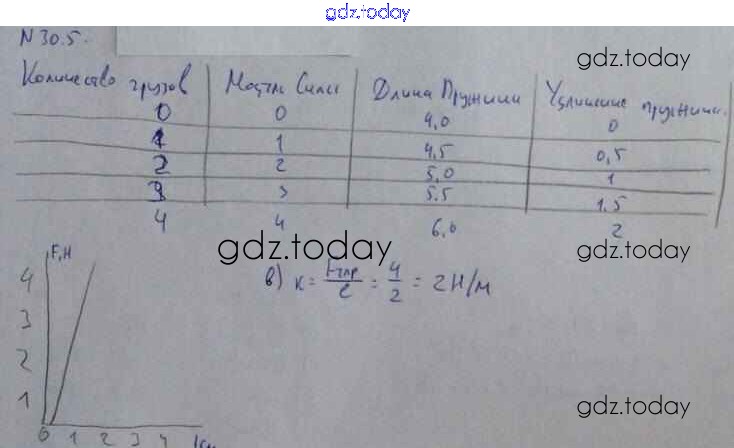 gdz.today
N 30.5.
gdz.today
Количество грузов Модуль Силы Длина Пружины Удлинение пружины
0 0 4,0 0
1 1 4,5 0,5
2 2 5,0 1
3 3 5.5 1,5
4 4 6,0 2
gdz.today
gdz.today
F,H
в) к = Fупр/l = 4/2 = 2 Н/м
4
3
2
1
gdz.today
0 1 2 3 4 lсм